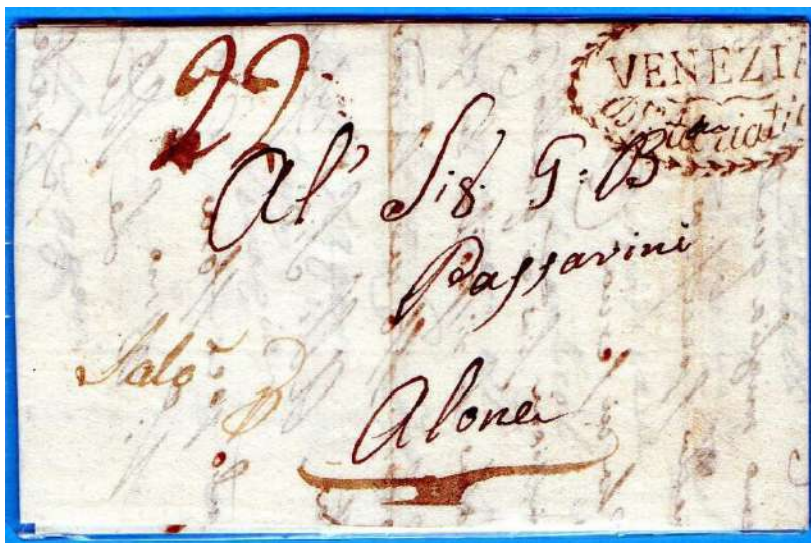 22
VENEZIA
Al' Sig. G: Bta
Passarini
Salò
Alone